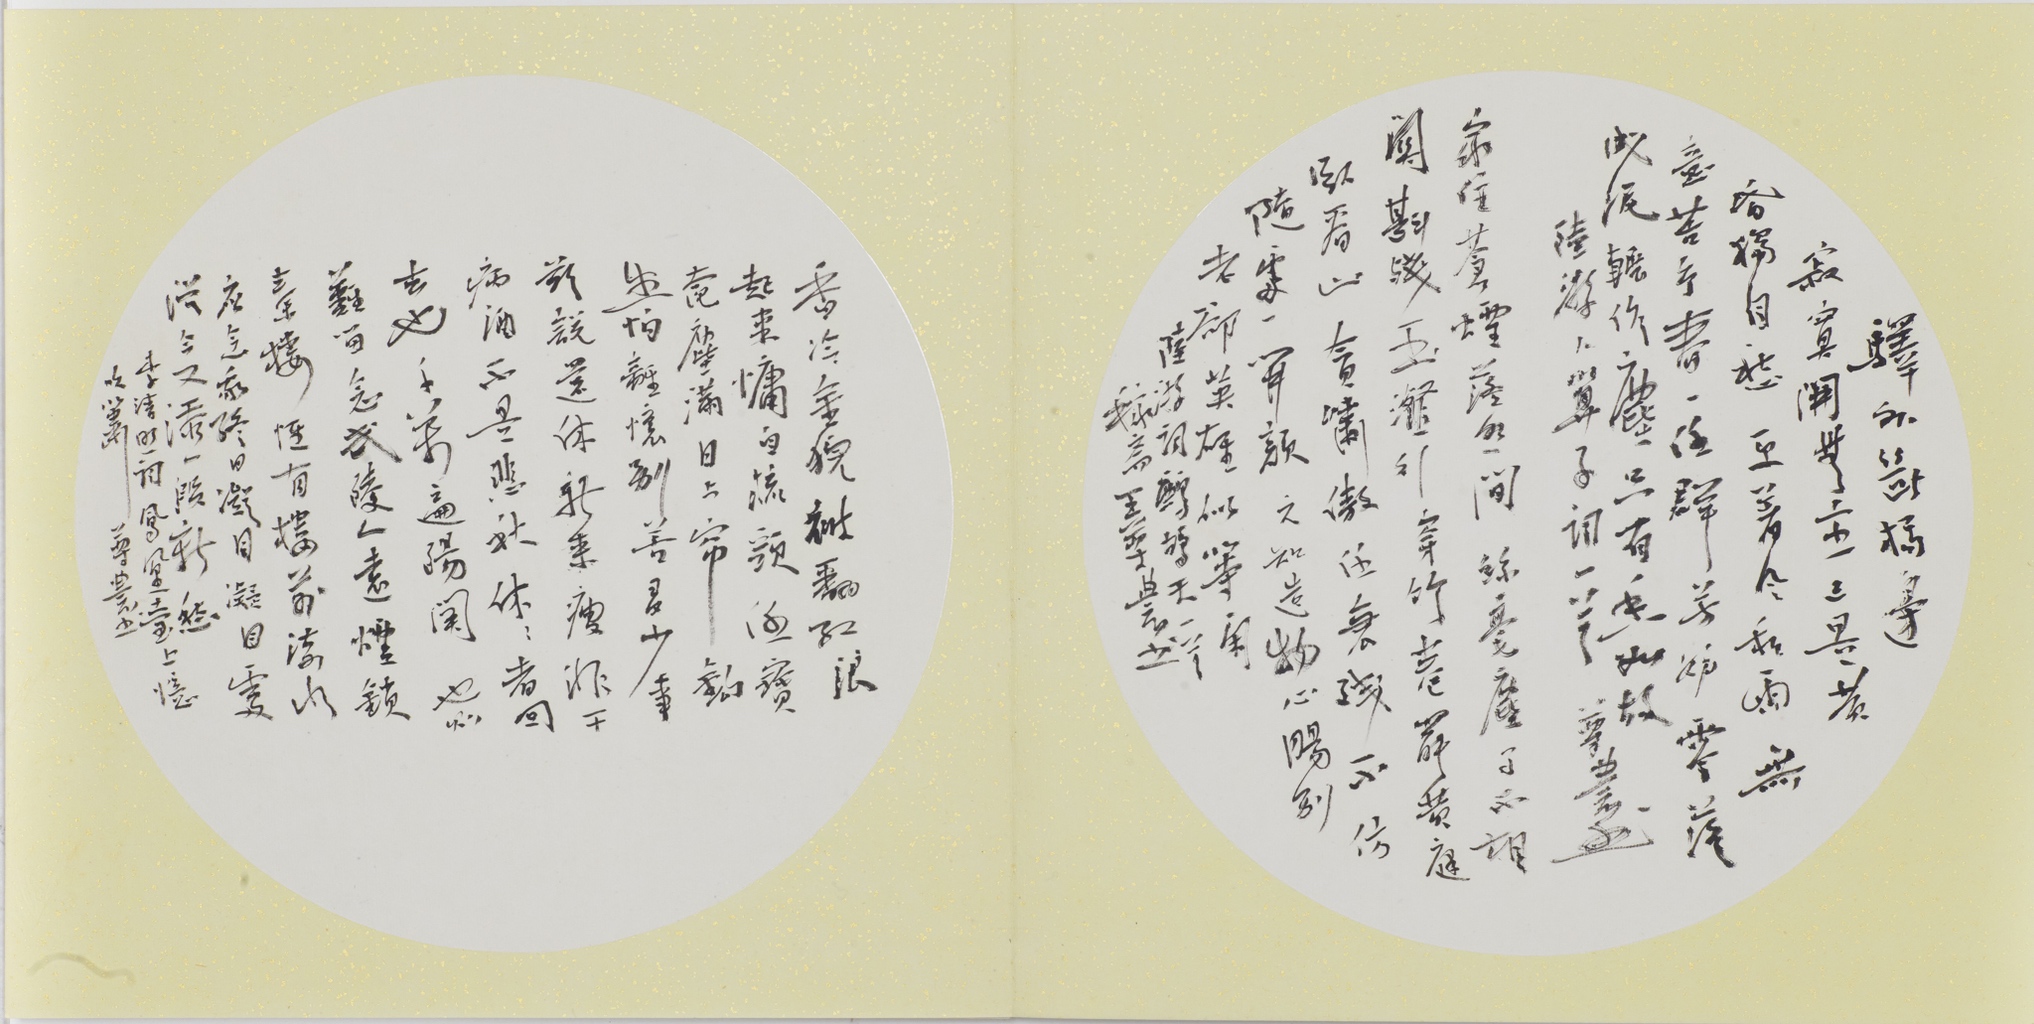 驛外斷橋邊
寂寞開無主已是黃
昏獨自愁更著風和雨無
意苦爭春一任群芳妒零落
成泥輾作塵只有香如故
陸游卜算子詞一首 尊農書
家住蒼煙落照間絲毫塵事不相
關斟殘玉瀣行穿竹卷罷黃庭
臥看山貪嘯傲任衰殘不妨
隨處一開顏元知造物心腸別
老卻英雄似等閑
陸游詞鷓鴣天一首
王尊農書
香冷金猊被翻紅浪
起來慵自梳頭任寶
奩塵滿日上簾鉤
生怕離懷別苦多少事
欲說還休新來瘦非干
病酒不是悲秋休〻者回
去也千萬遍陽關也則
難留念武陵人遠煙鎖
秦樓惟有樓前流水
應念我終日凝目凝目處
從今又添一段新愁
李清照詞鳳凰臺上憶
吹簫 尊農書